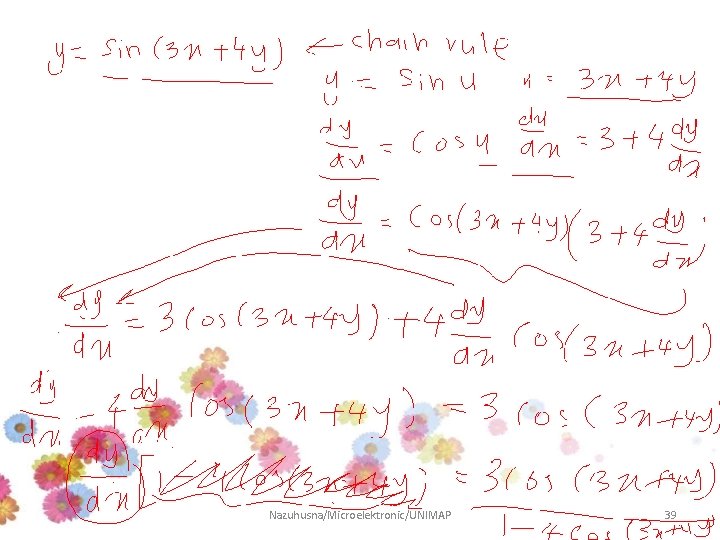 y = sin (3x + 4y) ← chain rule
y = sin u u = 3x + 4y
dy/du = cos u du/dx = 3 + 4 dy/dx
dy/dx = cos(3x + 4y)(3 + 4 dy/dx)
dy/dx = 3 cos (3x + 4y) + 4 dy/dx cos(3x + 4y)
dy/dx - 4 dy/dx cos (3x + 4y) = 3 cos (3x + 4y)
dy/dx = 3 cos (3x + 4y)
1 - 4 cos (3x + 4y)
Nazuhusna/Microelektronic/UNIMAP 39